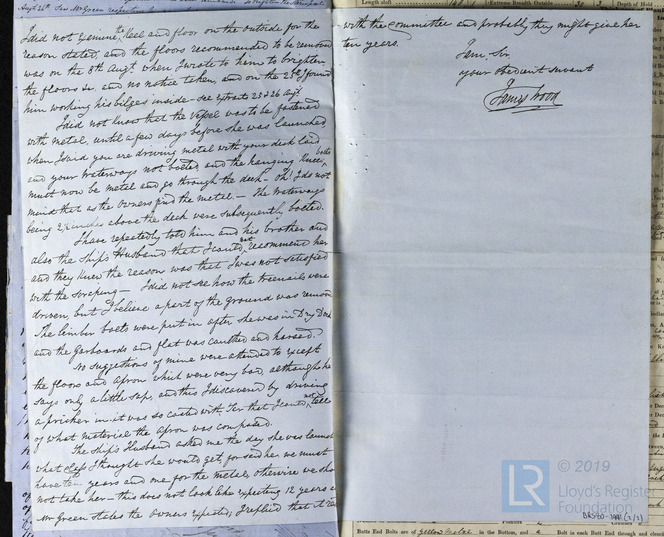 Augt 26th Saw Mr Green respecting
I did not examine the keel and floor on the outside for the
reason stated, and the floors recommended to be removed
was on the 8th Augt. when I wrote to them to brighten
the floors &c and no notice taken, and on the 25th I found
him working his bilges inside - see extracts 25 & 26 Augt
I did not know that the vessel was to be fastened
with metal, until a few days before she was launched
when I said you are driving metal with your deck laid
and your Waterways not bolted and the hanging Knees bolts
must now be metal and go through the deck - Oh! I do not
mind that as the owners find the metal. - The Waterways
being 2½ inches above the deck were subsequently bolted.
I have repeatedly told him and his brother and
also the Ship's Husband that I could not recommend her
and they knew the reason was that I was not satisfied
with the scraping - I did not see how the treenails were
driven, but I believe a part of the ground was removed
The limber bolts were put in after she was in Dry Dock
and the Garboards and flat was caulked and horsed.
No suggestions of mine were attended to except
the floors and Apron which were very bad, although he
says only a little sap, and this I discovered by driving
a pricker in it was so coated with Tar that I could not tell
of what material the Apron was composed.
The Ship's Husband asked me the day she was launched
what class I thought she would get, for said he we must
have ten years and me for the metal, otherwise we should
not take her - this does not look like expecting 12 years as
Mr Green states the Owners expected; I replied that it
with the Committee and probably they might give her
ten years.
I am, Sir,
your obedient servant
James Wood
Length aloft
Extreme Breadth Outside
Depth of Hold
© 2019
LR
Lloyd's Register
Foundation
Butts End Bolts are of Yellow Metal in the Bottom, and
Bolt in each Butt End through and